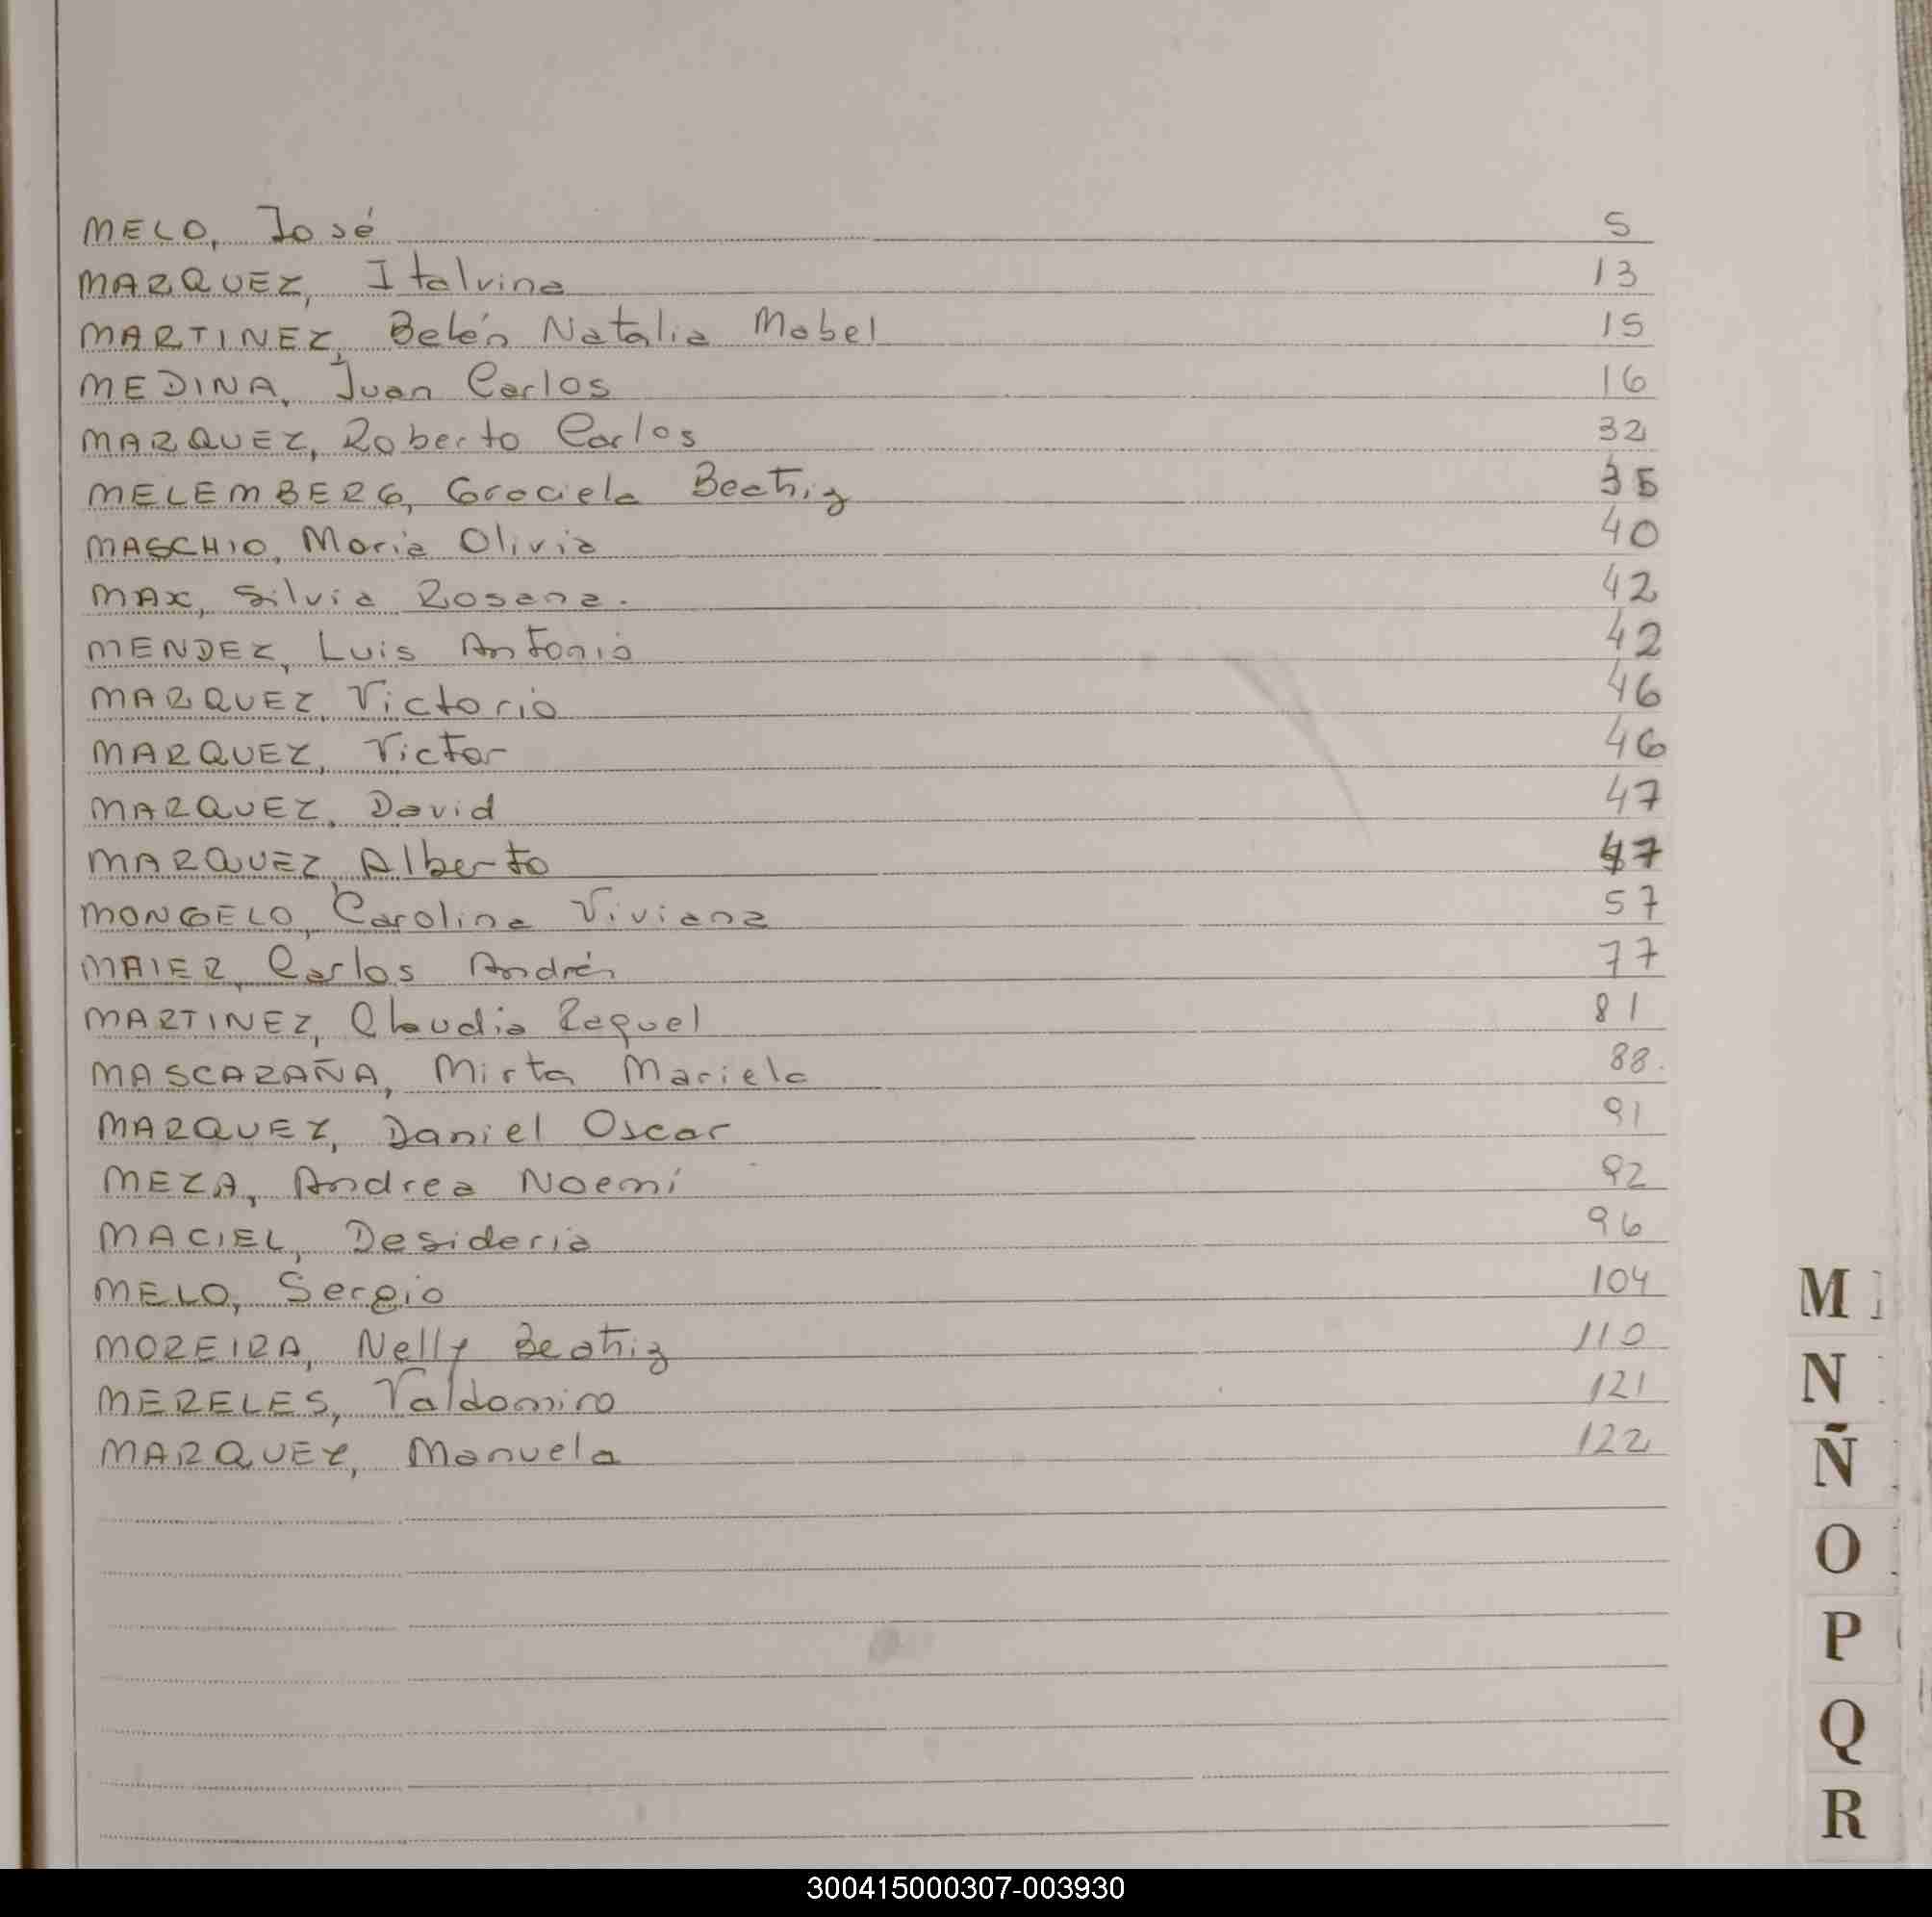 MELO, José 5
MARQUEZ, Italvina 13
MARTINEZ, Belén Natalia Mabel 15
MEDINA, Juan Carlos 16
MARQUEZ, Roberto Carlos 32
MELEMBERG, Graciela Beatriz 35
MASCHIO, Maria Olivia 40
MAX, Silvia Rosana. 42
MENDEZ, Luis Antonio 42
MARQUEZ, Victorio 46
MARQUEZ, Victor 46
MARQUEZ, David 47
MARQUEZ, Alberto 47
MONGELO, Carolina Viviana 57
MAIER, Carlos Andrés 77
MARTINEZ, Claudia Raquel 81
MASCARAÑA, Mirta Mariela 88.
MARQUEZ, Daniel Oscar 91
MEZA, Andrea Noemí 92
MACIEL, Desideria 96
MELO, Sergio 104
MOREIRA, Nelly Beatriz 110
MERELES, Valdomiro 121
MARQUEZ, Manuela 122
M
N
Ñ
O
P
Q
R
300415000307-003930